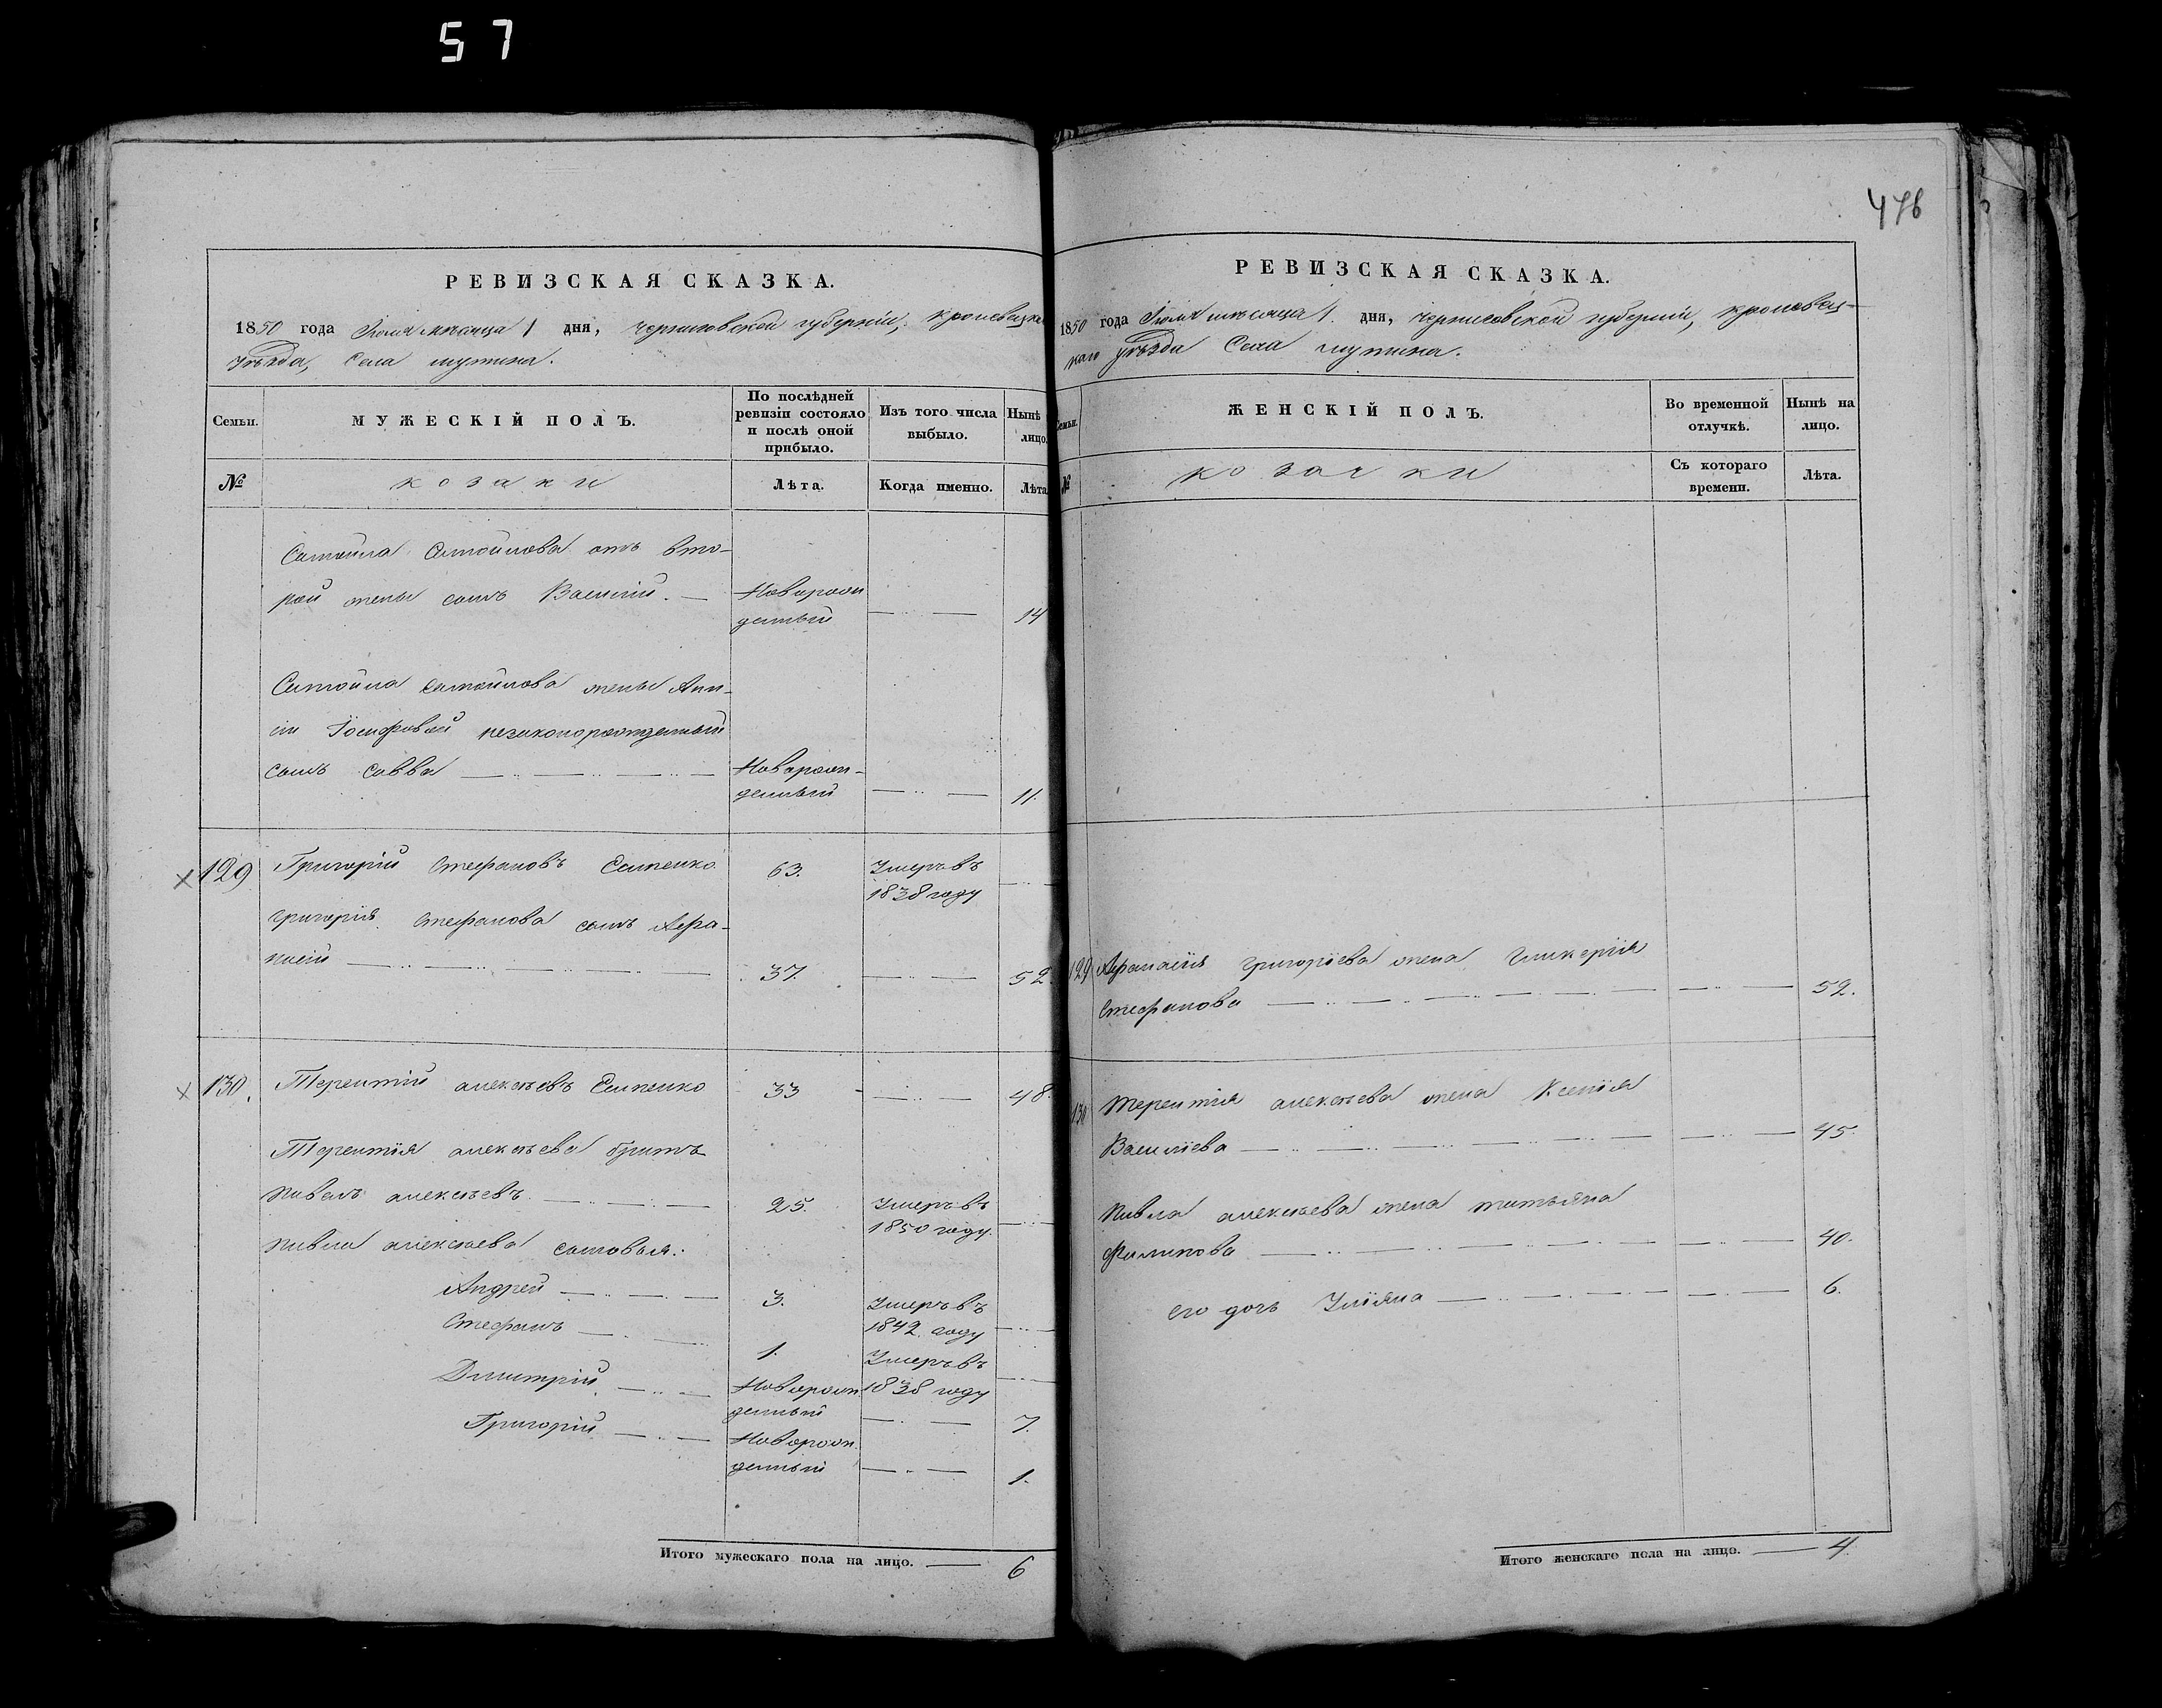 57
476
РЕВИЗСКАЯ СКАЗКА.
1850 года Іюля мѣсяца 1 дня, Черниговской губерніи, Кролевецка
уѣзда, Села мутина.
Семьи.
МУЖЕСКІЙ ПОЛЪ.
По послѣдней
ревизіи состояло
и послѣ оной
прибыло.
Изъ того числа
выбыло.
Нынѣ
лицо.
№
козаки
Лѣта.
Когда именно.
Лѣта
Самойла Самойлова отъ вто-
рой жены сынъ Василій. —
Новорож
денный
14
Самойла Самойлова жены Анн-
ы Іосифовой незаконорожденный
сынъ Савва
Новорож-
денный
11.
129
Григорій Стефановъ
63.
Умеръ въ
1838 году
Григорія Стефанова сынъ Афа-
насій
37.
52.
130.
Терентій алексѣевъ
33
48.
Терентія алексѣева братъ
Павелъ алексѣевъ
25.
Умеръ въ
1850 году.
Павла алексѣева сыновья:
Андрей
3.
Умеръ въ
1842 году
Стефанъ
1.
Умеръ въ
1838 году
Дмитрій
Новорож
денный
7.
Григорій
Новорож.
денный
1.
Итого мужескаго пола на лицо. — 6
РЕВИЗСКАЯ СКАЗКА.
1850 года Іюля мѣсяца 1. дня, Черниговской губерніи, Кролевец-
каго уѣзда Села мутина.
Семьи.
ЖЕНСКІЙ ПОЛЪ.
Во временной
отлучкѣ.
Нынѣ на
лицо.
№
козачки
Съ котораго
времени.
Лѣта.
129
Афанасія Григоріева жена Гликерія
Стефанова
52.
130
Терентія алексѣева жена Ксенія
Василіева
45.
Павла алексѣева жена татьяна
Филипова
40.
его дочь Уліяна
6.
Итого женскаго пола на лицо. — 4.